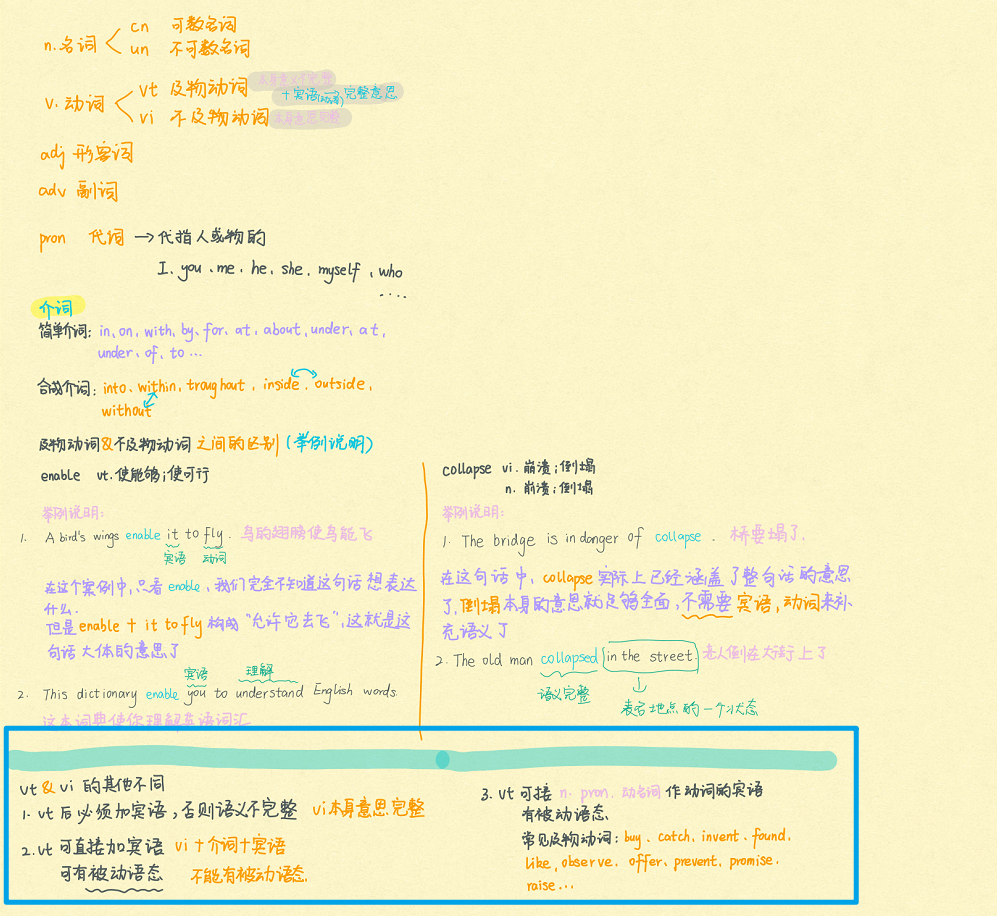 n.名词
cn 可数名词
un 不可数名词
v.动词
vt 及物动词 本身意思不完整
+宾语(动词)→完整意思
vi 不及物动词 本身意思完整
adj 形容词
adv 副词
pron 代词 →代指人或物的
I、you、me、he、she、myself、who
....
介词
简单介词: in、on、with、by、for、at、about、under、at、
under、of、to...
合成介词: into、within、troughout、inside、outside、
without
及物动词&不及物动词 之间的区别(举例说明)
enable vt.使能够;使可行
举例说明:
1. A bird's wings enable it to fly. 鸟的翅膀使鸟能飞
宾语 动词
在这个案例中,只看enable,我们完全不知道这句话想表达
什么.
但是enable + it to fly 构成"允许它去飞",这就是这
句话大体的意思了
宾语 理解
2. This dictionary enable you to understand English words.
这本词典使你理解英语词汇
collapse vi.崩溃;倒塌
n.崩溃;倒塌
举例说明:
1. The bridge is in danger of collapse. 桥要塌了.
在这句话中,collapse实际上已经涵盖了整句话的意思
了,倒塌本身的意思就足够全面,不需要宾语,动词来补
充语义了
2. The old man collapsed in the street. 老人倒在大街上了
语义完整
表名地点的一个状态
vt & vi 的其他不同
1. vt 后必须加宾语,否则语义不完整 vi本身意思完整
2. vt 可直接加宾语 vi+介词+宾语
可有被动语态 不能有被动语态.
3. vt 可接 n. pron. 动名词 作动词的宾语
有被动语态
常见及物动词: buy、catch、invent、found、
like、observe、offer、prevent、promise、
raise...